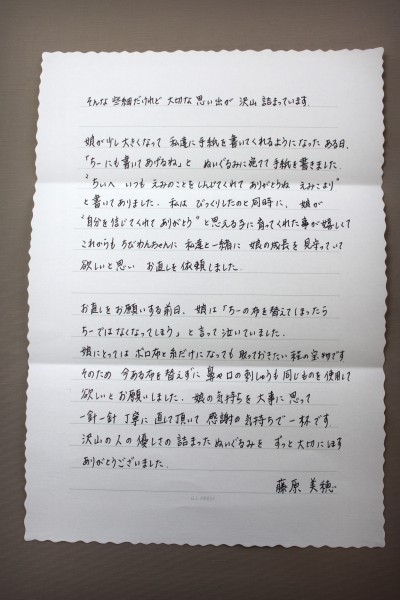 そんな些細だけれど 大切な思い出が 沢山 詰まっています.
娘が少し大きくなって 私達に手紙を書いてくれるようになったある日、
「ちーにも書いてあげるね」と ぬいぐるみに宛てて手紙を書きました.
"ちぃへ いつも えみのことをしんじてくれて ありがとうね えみこより"
と書いてありました. 私は びっくりしたのと同時に、娘が
"自分を信じてくれて ありがとう" と思える子に育ってくれた事が嬉しくて
これからも ちびわんちゃんに 私達と一緒に 娘の成長を 見守っていて
欲しいと思い お直しを依頼しました.
お直しをお願いする前日、娘は「ちーの布を替えてしまったら
ちーではなくなってしまう」と言って泣いていました.
娘にとっては ボロ布と糸だけになっても 取っておきたい程の宝物です
そのため 今ある布を替えずに 鼻や口の刺しゅうも同じものを使用して
欲しいとお願いしました. 娘の気持ちを大事に思って
一針一針 丁寧に直して頂いて 感謝の気持ちで一杯です
沢山の人の優しさの詰まったぬいぐるみを ずっと大切にします
ありがとうございました.
藤原 美穂